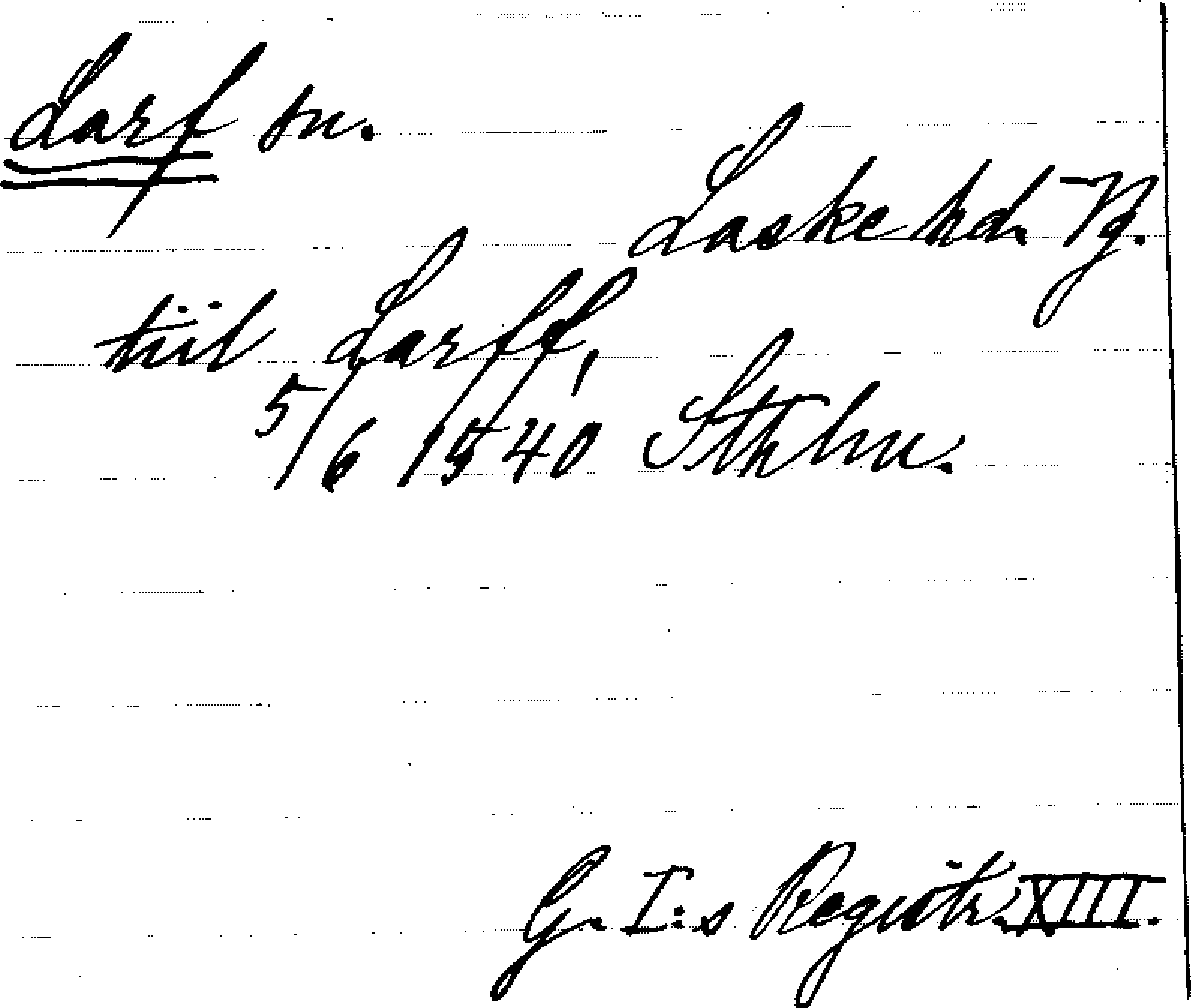 Larf sn.
Laske hd. Vg.
tiil Larff,
5/6 1540 Sthlm.
G. I:s Registr. XIII.